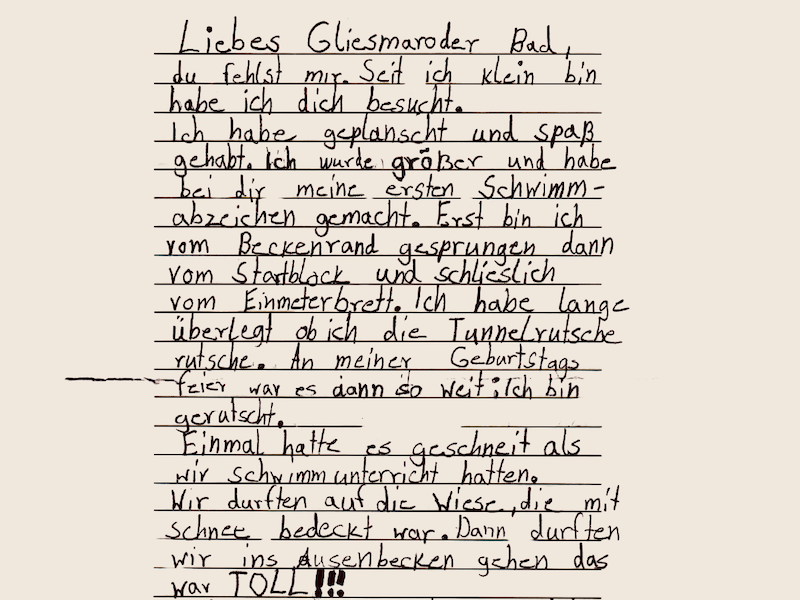 Liebes Gliesmaroder Bad,
du fehlst mir. Seit ich klein bin
habe ich dich besucht.
Ich habe geplanscht und spaß
gehabt. Ich wurde größer und habe
bei dir meine ersten Schwimm-
abzeichen gemacht. Erst bin ich
vom Beckenrand gesprungen dann
vom Startblock und schlieslich
vom Einmeterbrett. Ich habe lange
überlegt ob ich die Tunnelrutsche
rutsche. An meiner Geburtstags
feier war es dann so weit: Ich bin
gerutscht.
Einmal hatte es geschneit als
wir schwimmunterricht hatten.
Wir durften auf die Wiese, die mit
schnee bedeckt war. Dann durften
wir ins Ausenbecken gehen das
war TOLL!!!